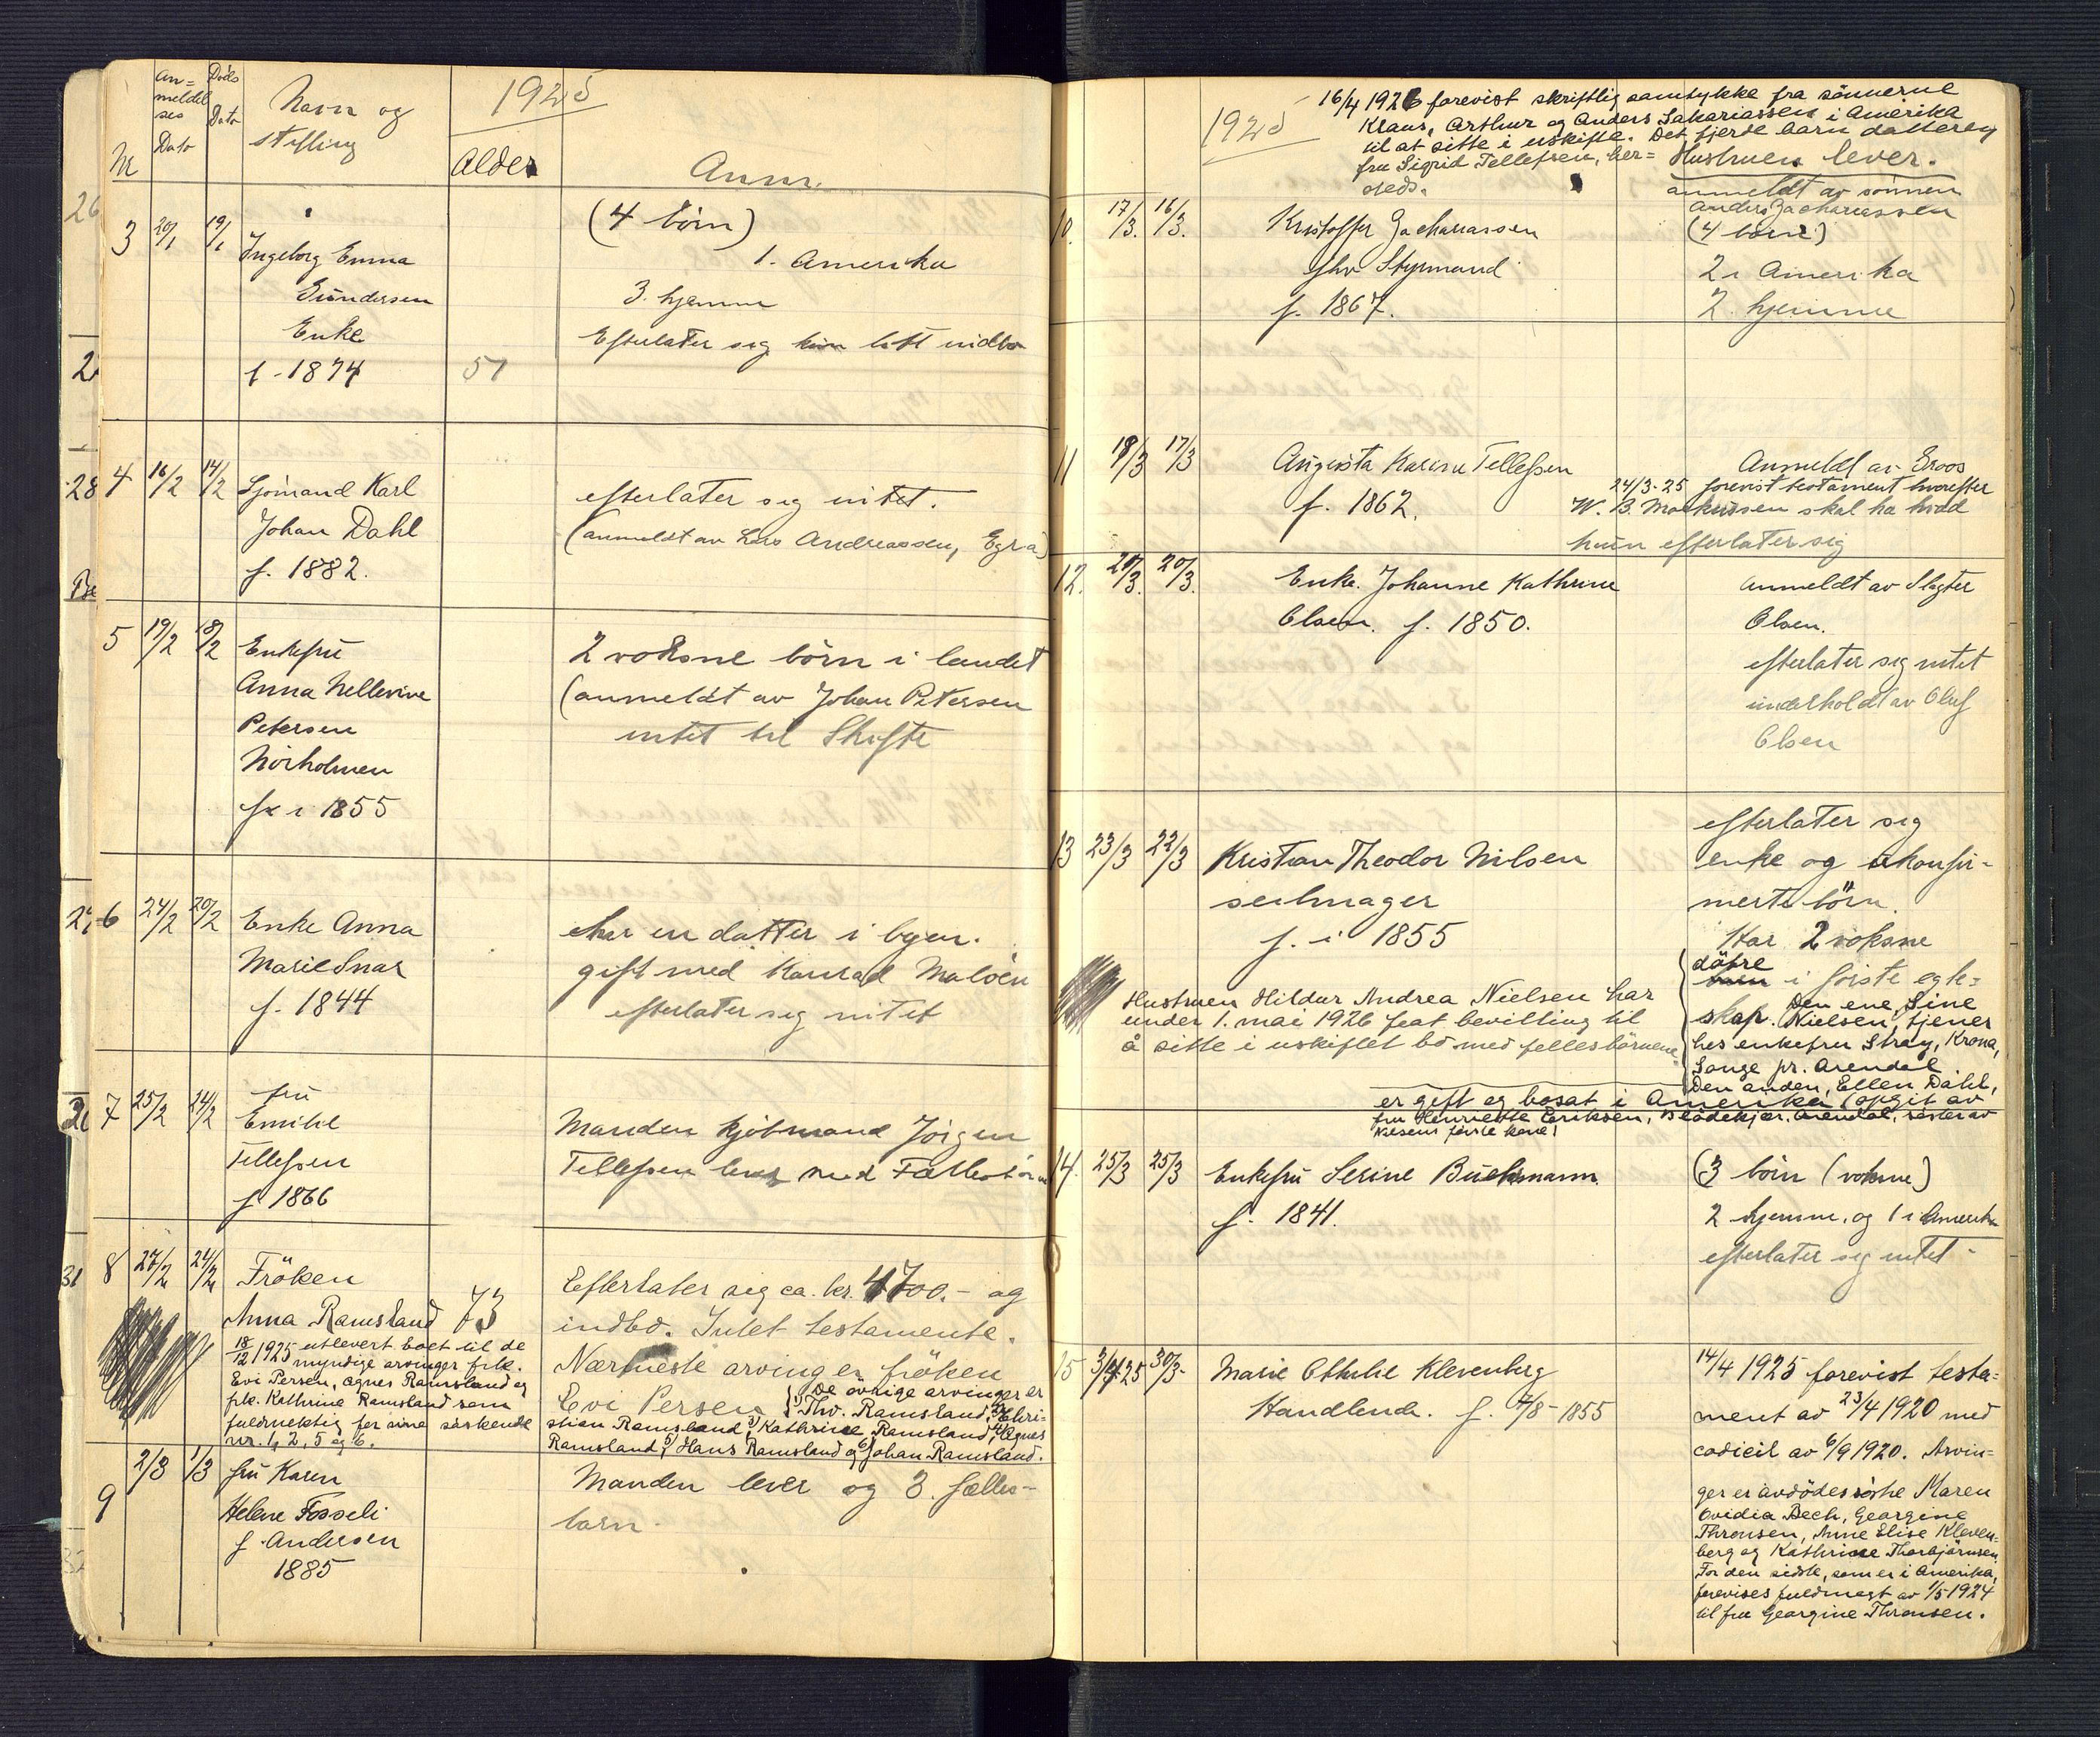 Nr
An=
meldel
ses
Dato
Döds
Dato
Navn og
stilling
1925
Alder
Anm.
3 20/1 19/1 Ingeborg Emma
Gundersen
Enke
f. 1874
51
(4 börn)
1. Amerika
3. hjemme
Efterlater sig kun litt indbo
4 16/2 14/2 Sjömand Karl
Johan Dahl
f. 1882.
efterlater sig intet.
(anmeldt av Lars Andreassen, Egra)
5 19/2 18/2 Enkefru
Anna Nellevine
Petersen
Norholmen
fx i 1855
2 voksne börn i landet
(anmeldt av Johan Petersen
intet til Skifte
6 24/2 20/2 Enke Anna
Marie Snar
f. 1844
har en datter i byen.
gift med Konrad Malöen
efterlater sig intet
7 25/2 24/2 fru
Emilie
Tellefsen
f 1866
Manden kjöbmand Jörgen
Tellefsen lever med Fællesbörn
8 27/2 24/2 Fröken
Anna Ramsland 73
18/12 1925 utlevert boet til de
myndige arvinger frk.
Evi Persen, Agnes Ramsland og
frk. Kathrine Ramsland som
fuldmektig for sine söskende
nr. 1, 2, 5 og 6.
Efterlater sig ca. kr. 4700.- og
indbo. Intet testamente.
Nærmeste arving er fröken
Evi Persen { De övrige arvinger er
1) Thv. Ramsland, 2) Chri-
stian Ramsland, 3) Kathrine Ramsland, 4) Agnes
Ramsland, 5) Hans Ramsland og 6) Johan Ramsland.
9 2/3 1/3 fru Karen
Helene Fosseli
f. Andersen
1885
Manden lever og 3. fælles-
barn.
1925
16/4 1926 forevist skriftlig samtykke fra sönnerne
Klaus, Arthur og Anders Sakariassen i Amerika
til at sitte i uskifte. Det fjerde barn datteren
fru Sigrid Tellefsen, her=
steds.
Hustruen lever.
anmeldt av sönnen
Anders Zachariassen
10. 17/3. 16/3. Kristoffer Zachariassen
fhv Styrmand
f. 1867.
(4 börn)
2 i Amerika
2. hjemme
11 18/3 17/3 Augusta Karine Tellefsen
f. 1862.
Anmeldt av Eroos
24/3-25 forevist testament hvorefter
W. B. Markussen skal ha hvad
hun efterlater sig
12. 20/3. 20/3. Enke. Johanne Kathrine
Olsen. f. 1850.
Anmeldt av Slagter
Olsen.
efterlater sig intet
underholdt av Oluf
Olsen
13 23/3 22/3 Kristian Theodor Nilsen
seilmager
f. i 1855
efterlater sig
enke og ukonfir-
merte börn.
Har 2 voksne
döttre
barn i förste egte=
skap. Den ene, Sine
Nielsen, tjener
hos enkefru Stray, Krona,
Songe pr. Arendal
Den anden, Ellen Dahl,
er gift og bosat i Amerika (opgit av
fru Henriette Eriksen, Blödekjær, Arendal, söster av
Nilsens förste kone)
Hustruen Hildur Andrea Nielsen har
under 1. mai 1926 feat bevilling til
å sitte i uskiftet bo med fellesbörnene
14. 25/3 25/3 Enkefru Serine Buckmann.
f. 1841.
(3 börn (voksne)
2 hjemme, og 1 i Amerika
efterlater sig intet -
15 3/4 25 30/3- Marie Othilie Klevenberg
Handlende. f. 7/8-1855
14/4 1925 forevist testa=
ment av 23/4 1920 med
codicil av 6/9 1920. Arvin=
ger er avdödes söstre Maren
Ovidia Bech, Georgine
Thronsen, Anne Elise Kleven-
berg og Kathrine Thorbjörnsen.
For den sidste, som er i Amerika,
forevises fuldmagt av 1/5 1924
til fru Georgine Thronsen.